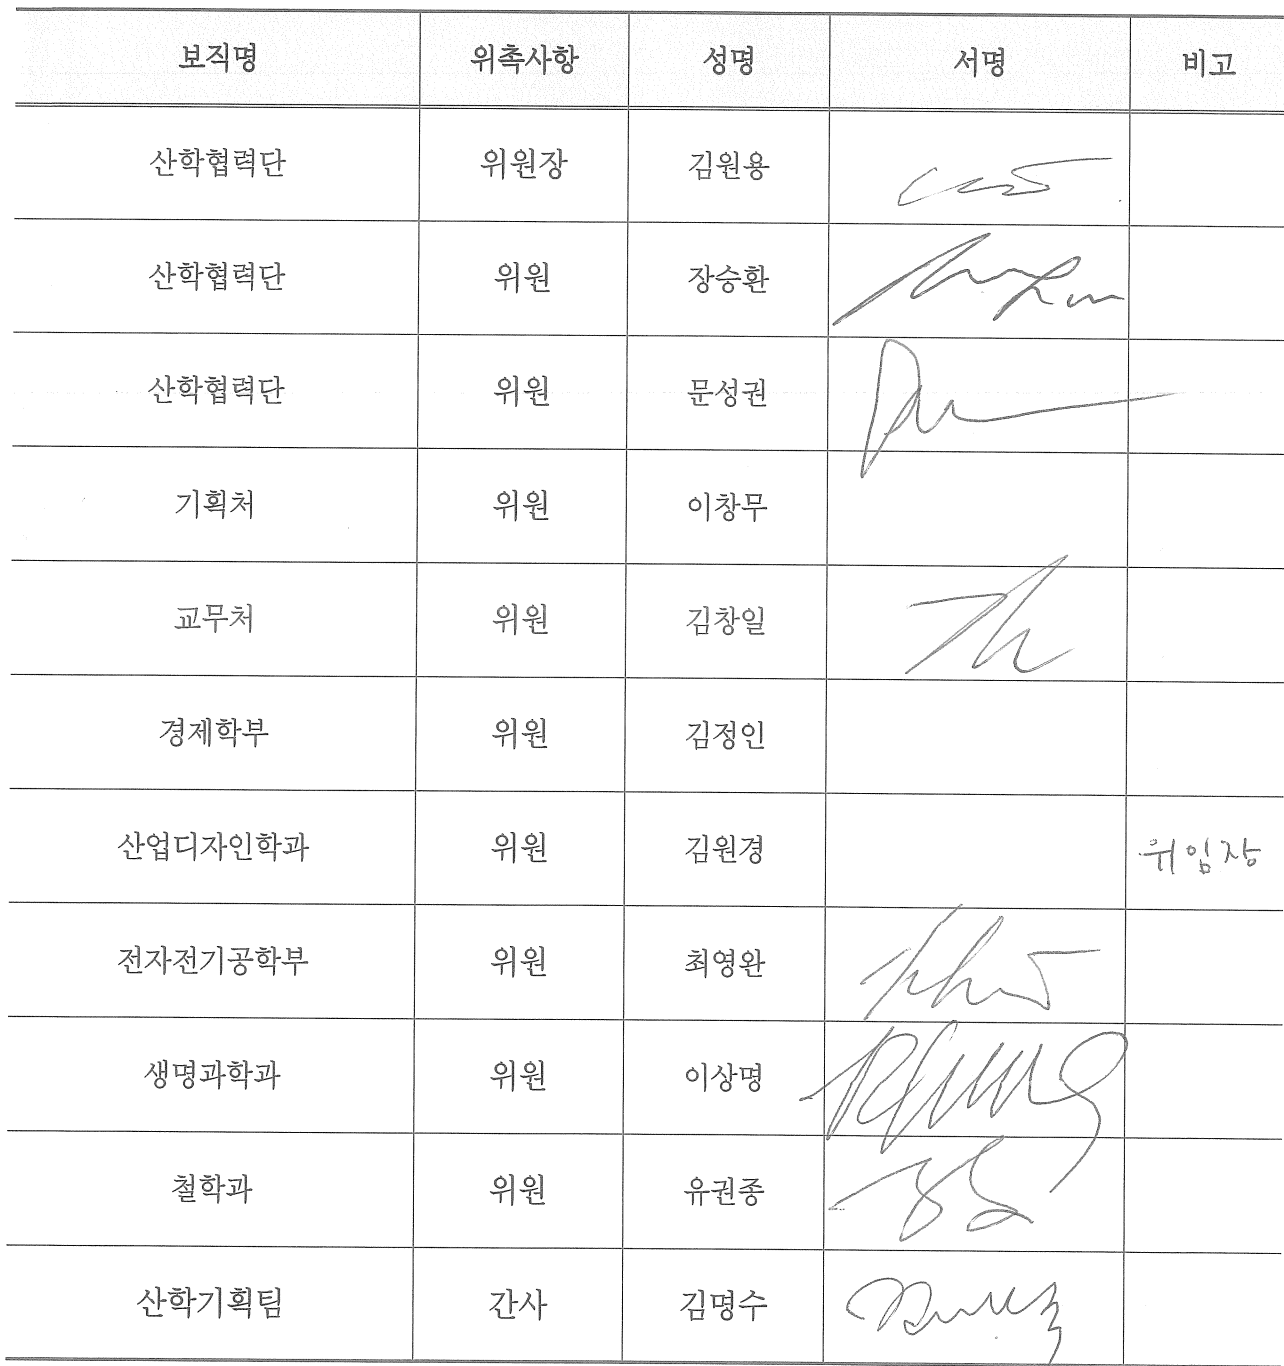 보직명 위촉사항 성명 서명 비고
산학협력단 위원장 김원용
산학협력단 위원 장승환
산학협력단 위원 문성권
기획처 위원 이창무
교무처 위원 김창일
경제학부 위원 김정인
산업디자인학과 위원 김원경 위임장
전자전기공학부 위원 최영완
생명과학과 위원 이상명
철학과 위원 유권종
산학기획팀 간사 김명수